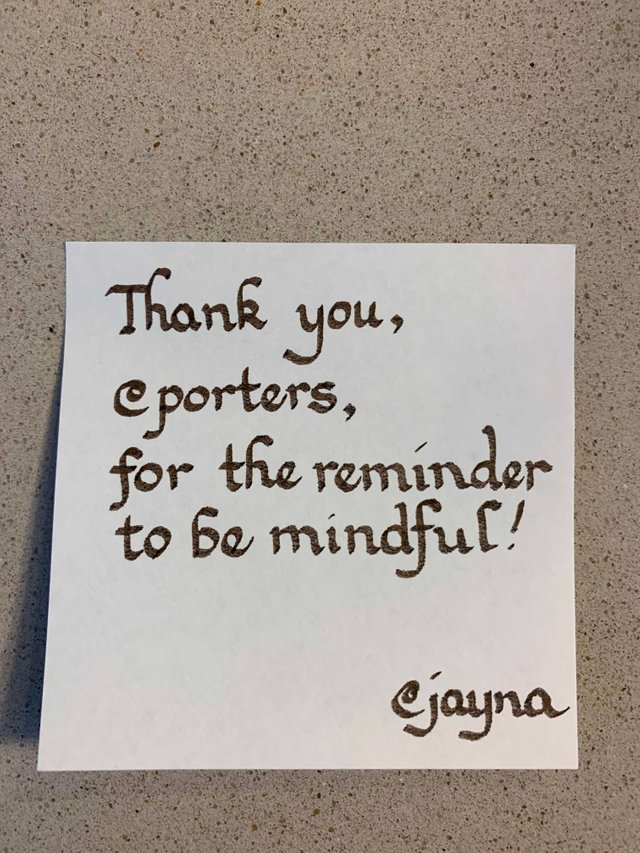 Thank you,
cporters,
for the reminder
to be mindful!
cjayna